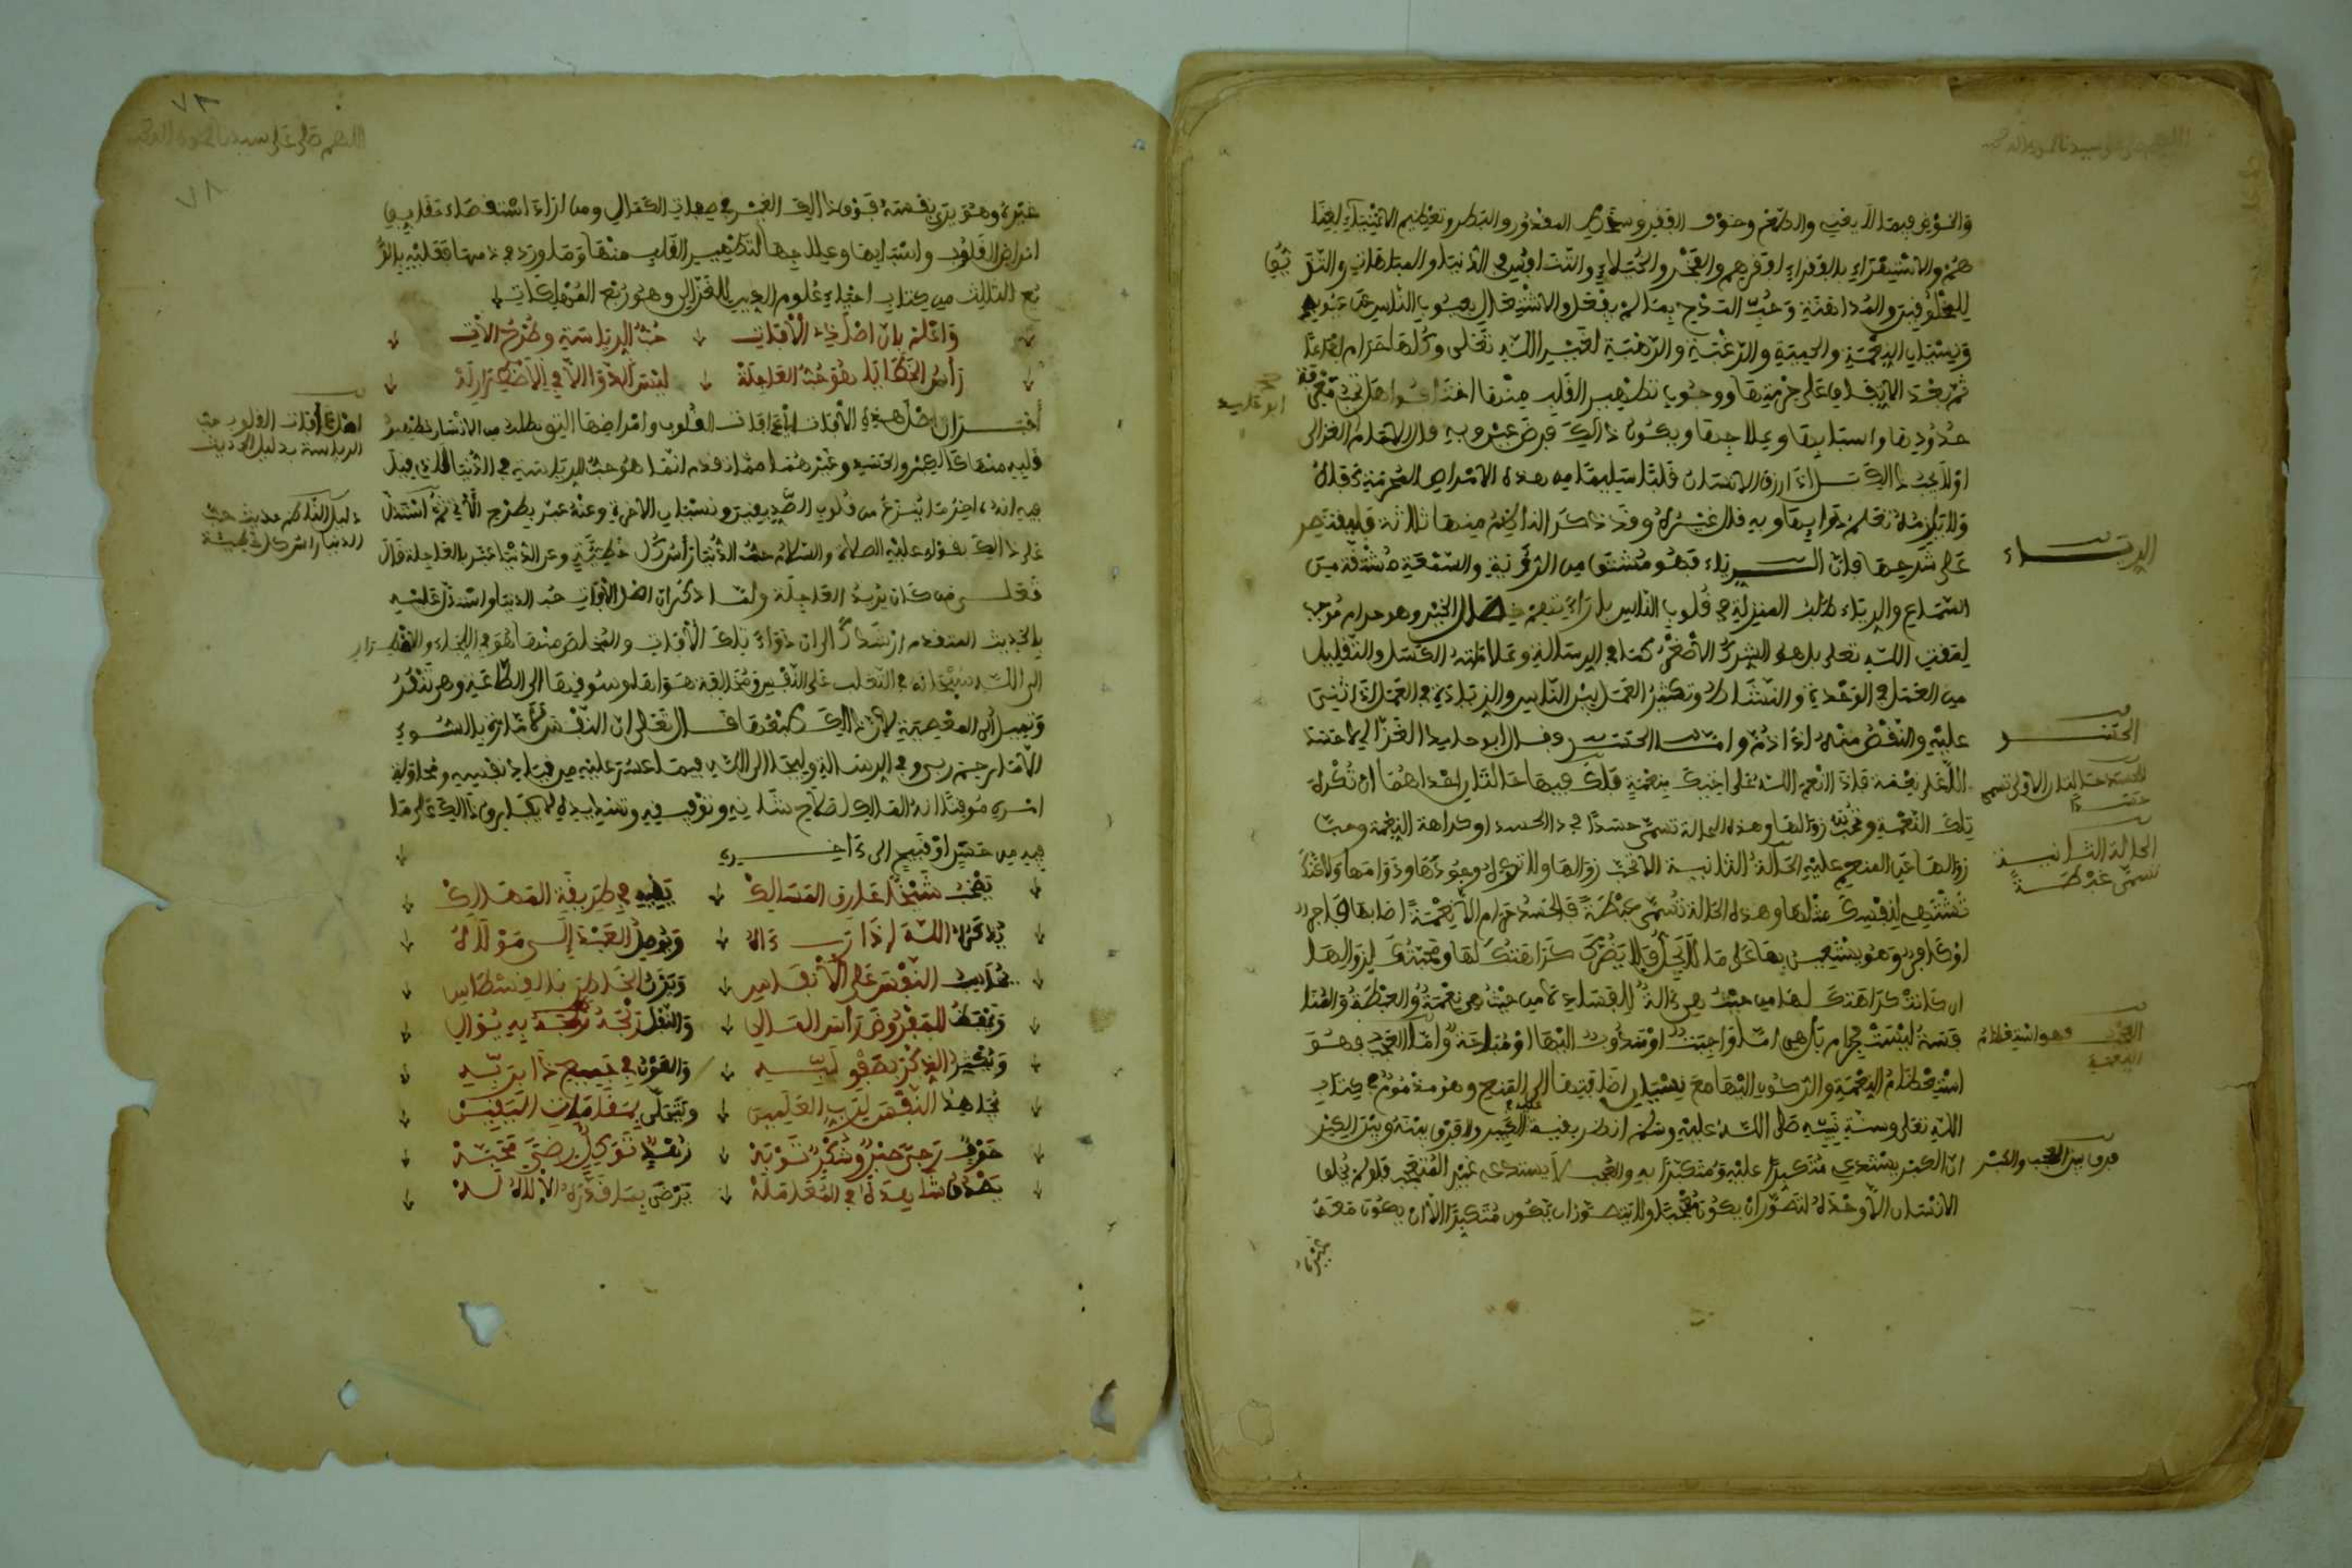 والخوض فيما لا يعني والطمع وخوف الفقر وسخط المقدور والبطر وتعظيم الاغنياء لغنا
هم والاستهزاء بالفقراء لفقرهم والفخر والخيلاء والتنافس في الدنيا والمباهاة والتزين
للمخلوقين والمداهنة وحب المدح بما لم يفعل والاشتغال بعيوب الناس عن عيوبه
ونسيان النعمة والحمية والرغبة والرهبة لغير الله تعلى وكلها حرام اجماعا
ثم بعد الاتفاق على حرمتها ووجوب تطهير القلب منها اختلفوا هل تجب معرفة
حدودها واسبابها وعلاجها ويكون ذالك فرض عين وبه قال الامام الغزالي
اولا يجب ذالك الا اذا رزق الانسان قلبا سليما من هذه الامراض المحرمة كفاه
ولا يلزمه تعلم دوائها وبه قال غيره وقد ذكر الناظم منها ثلاثة فلنقتصر
على شرحها فاما الرياء فهو مشتق من الرؤية والسمعة مشتقة من
السماع والرياء طلب المنزلة في قلوب الناس بارائهم خصال الخير وهو حرام موجب
لمقت الله تعلى بل هو الشرك الأصغر كما في الرسالة وعلامته الكسل والتقليل
من العمل في الوحدة والنشاط وتكثير العمل بين الناس والزيادة في العمل اذا اثني
عليه والنقص منه اذا ذم واما الحسد وقال ابو حامد الغزالي لا حسد
الا على نعمة فاذا انعم الله على اخيك بنعمة فلك فيها حالتان احداهما ان تكره
تلك النعمة وتحب زوالها وهذه الحالة تسمى حسدا فحد الحسد اذا كراهة النعمة وحب
زوالها عن المنعم عليه الحالة الثانية الا تحب زوالها ولا تكره وجودها ودوامها ولاكن
تشتهي لنفسك مثلها وهذه الحالة تسمى غبطة فالحسد حرام الا نعمة اصابها فاجر
او كافر وهو يستعين بها على ما لا يحل فلا يضرك كراهتك لها ومحبتك لزوالها
ان كانت كراهتك لها من حيث هي ءالة للفساد لا من حيث هي نعمة والغبطة والمنا
فسة ليست بحرام بل هي اما واجبة او مندوب اليها او مباحة واما العجب فهو
استعظام النعمة والركون اليها مع نسيان اضافتها الى المنعم وهو مذموم في كتاب
الله تعلى وسنة نبيه صلى الله عليه وسلم انظر بقية عليه والفرق بينه وبين الكبر
ان الكبر يستدعي متكبرا عليه ومتكبرا به والعجب لا يستدعي غير المعجب فلو لم يخلق
الانسان الا وحده لتصور ان يكون معجبا ولا يتصور ان يكون متكبرا الا ان يكون معه
غيره
الرياء
الحسد
الحسد حد الحالة الاولى تسمى
حسدا
الحالة الثانية
تسمى غبطة
العجب فهو استعظام
النعمة
فرق بين العجب والكبر
٧٨
اللهم صلى على سيدنا محمد
٧٨
غيره وهو يرى نفسه فوق ذالك الغير في صفات الكمال ومن اراد استقصاء
امراض القلوب واسبابها وعلاجها لتطهير القلب منها وما ورد في ذمها فعليه بالر
بع الثالث من كتاب احياء علوم الدين للغزالي وهو ربع المهلكات
واعلم بان اصل ذي الآفات حب الرياسة وطرح الآت
رأس الخطايا هو حب العاجلة ليس الدوا الا في الاضطرار له
أخبر ان اصل هذه الآفات اي ءافات القلوب وامراضها التي يطلب من الانسان تطهير
قلبه منها كالكبر والحسد وغيرهما مما تقدم انما هو حب الرياسة في الدنيا الذي قيل
فيه انه ءاخر ما ينزع من قلوب الصديقين ونسيان الآخرة وعنه عبر بطرح الآتي ثم استدل
على ذالك بقوله عليه الصلاة والسلام حب الدنيا رأس كل خطيئة وعن الدنيا عبر بالعاجلة قال
تعلى من كان يريد العاجلة ولما ذكر ان اصل الآفات حب الدنيا واستدل عليه
بالحديث المتقدم ارشدك الى ان دواء تلك الآفات والمخلص منها هو في اللجاء والاضطرار
الى الله سبحانه في التغلب على النفس ومخالفة هواها وسوقها الى الطاعة وهي تنفر
وتميل الى المعصية لان ذالك صنعها قال تعلى ان النفس لأمارة بالسوء
الا ما رحم ربي وفي الرسالة ويلجأ الى الله فيما عسر عليه من قياد نفسه ومحاولة
امره موقنا انه المالك لصلاح شانه وتوفيقه وتسديده لا يفارق ذالك على ما
فيه من حسن او قبيح الى ءاخره
يصحب شيخا عارف المسالك يقيه في طريقه المهالك
يذكره الله اذا رءاه ويوصل العبد الى مولاه
يحاسب النفس على الأنفاس ويزن الخاطر بالقسطاس
ويحفظ المفروض رأس المال والنفل ربحه به يوالي
ويكثر الذكر بصفو لبه والعون في جميع ذا بربه
يجاهد النفس لرب العلمين ويتحلى بمقامات اليقين
خوف رجى صبر وشكر توبة زهد توكل رضى محبة
يصدق شاهده في المعاملة يرضى بما قدره الإلاه له
اصل ءافات القلوب حب
الرياسة بدليل الحديث
حب
الدنيا رأس كل خطيئة